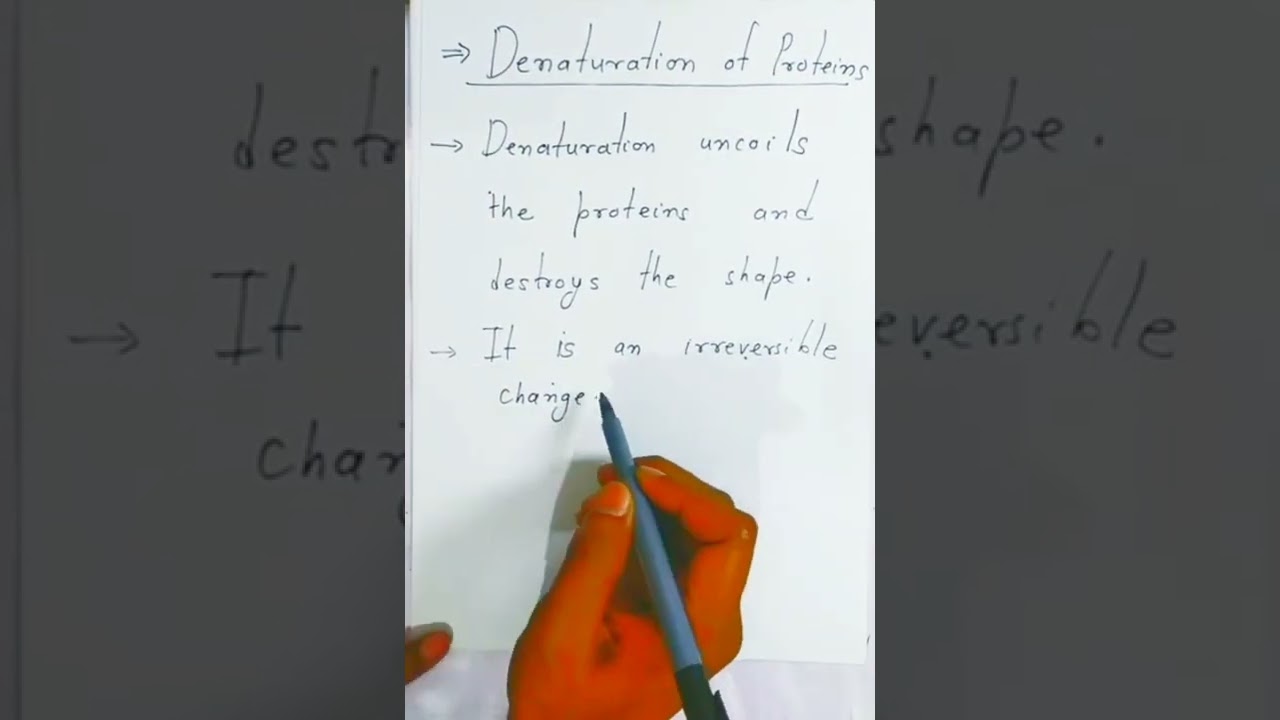 ⇒ Denaturation of Proteins
→ Denaturation uncoils
the proteins and
destroys the shape.
→ It is an irreversible
change.